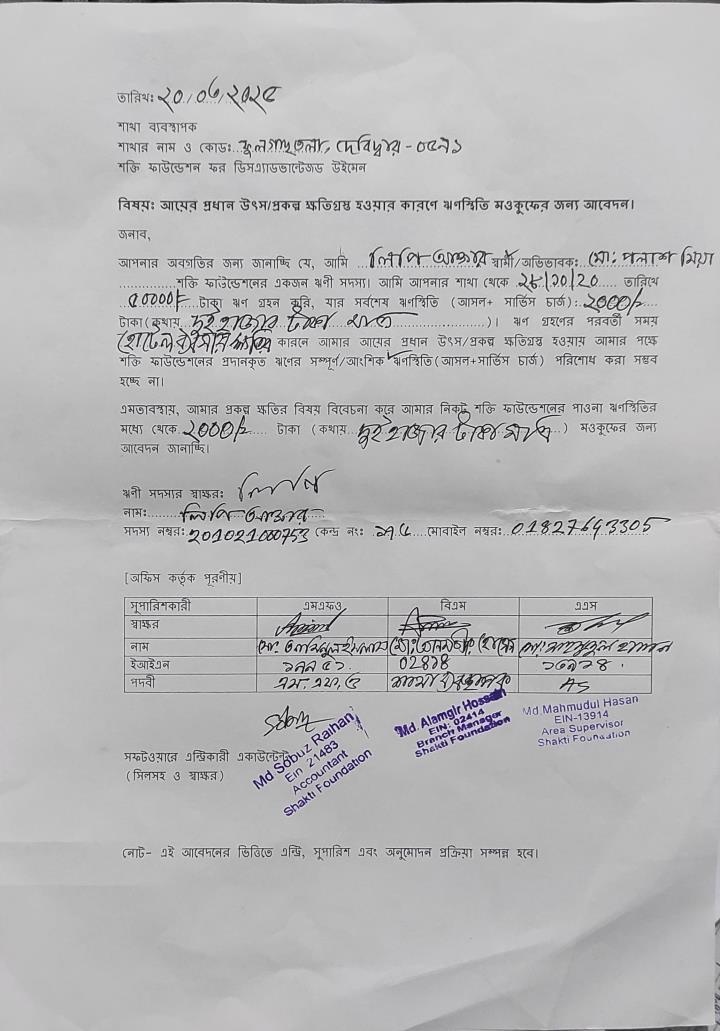 তারিখঃ ২০/০৬/২০২৫
শাখা ব্যবস্থাপক
শাখার নাম ও কোডঃ ফুলগাছতলা, দেবিদ্বার - ০৫৭১
শক্তি ফাউন্ডেশন ফর ডিসএ্যাডভান্টেজড উইমেন
বিষয়ঃ আয়ের প্রধান উৎস/প্রকল্প ক্ষতিগ্রস্ত হওয়ার কারণে ঋণস্থিতি মওকুফের জন্য আবেদন।
জনাব,
আপনার অবগতির জন্য জানাচ্ছি যে, আমি লিপি আক্তার স্বামী/অভিভাবক: মো: পলাশ মিয়া
শক্তি ফাউন্ডেশনের একজন ঋণী সদস্য। আমি আপনার শাখা থেকে ২৮/১০/২০ তারিখে
৫০০০০/- টাকা ঋণ গ্রহন করি, যার সর্বশেষ ঋণস্থিতি (আসল+ সার্ভিস চার্জ): ২০০০/-
টাকা (কথায় দুই হাজার টাকা মাত্র )। ঋণ গ্রহণের পরবর্তী সময়
হোটেল ব্যবসায় ক্ষতির কারনে আমার আয়ের প্রধান উৎস/প্রকল্প ক্ষতিগ্রস্ত হওয়ায় আমার পক্ষে
শক্তি ফাউন্ডেশনের প্রদানকৃত ঋণের সম্পূর্ণ/আংশিক ঋণস্থিতি(আসল+সার্ভিস চার্জ) পরিশোধ করা সম্ভব
হচ্ছে না।
এমতাবস্থায়, আমার প্রকল্প ক্ষতির বিষয় বিবেচনা করে আমার নিকট শক্তি ফাউন্ডেশনের পাওনা ঋণস্থিতির
মধ্যে থেকে ২০০০/- টাকা (কথায় দুই হাজার টাকা মাত্র ) মওকুফের জন্য
আবেদন জানাচ্ছি।
ঋণী সদস্যর স্বাক্ষর: লিপি
নাম: লিপি আক্তার
সদস্য নম্বর: 201021000753 কেন্দ্র নং: ১৭৫ মোবাইল নম্বর: 01827693305
[অফিস কর্তৃক পূরণীয়]
সুপারিশকারী এমএফও বিএম এএস
স্বাক্ষর
নাম মো: আমিনুল ইসলাম মো: আলমগীর হোসেন মো: মাহমুদুল হাসান
ইআইএন 02414 ১৩৯১৪
পদবী এম.এফ.ও শাখা ব্যবস্থাপক AS
Md. Alamgir Hossain
EIN: 02414
Branch Manager
Shakti Foundation
Md.Mahmudul Hasan
EIN-13914
Area Supervisor
Shakti Foundation
Md Sobuz Raihan
Ein 21483
Accountant
Shakti Foundation
সফটওয়ারে এন্ট্রিকারী একাউন্টেন্ট
(সিলসহ ও স্বাক্ষর)
নোট- এই আবেদনের ভিত্তিতে এন্ট্রি, সুপারিশ এবং অনুমোদন প্রক্রিয়া সম্পন্ন হবে।